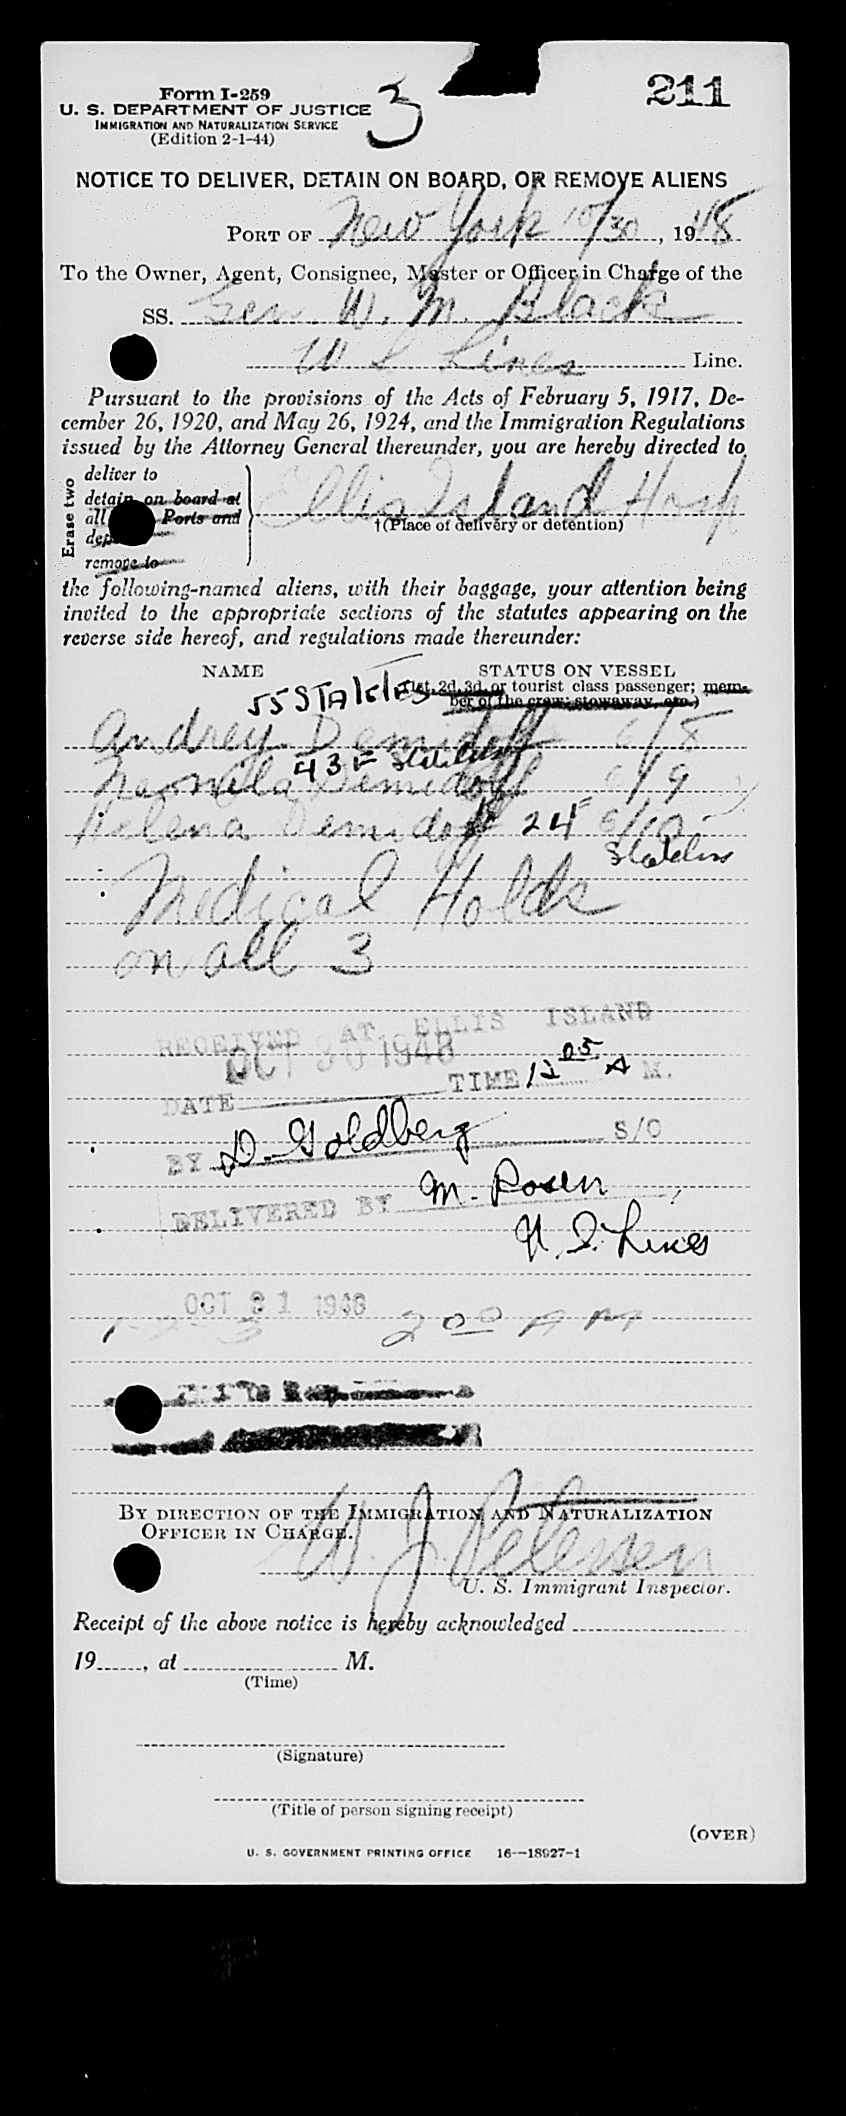 Form I-259
3
211
U. S. DEPARTMENT OF JUSTICE
IMMIGRATION AND NATURALIZATION SERVICE
(Edition 2-1-44)
NOTICE TO DELIVER, DETAIN ON BOARD, OR REMOVE ALIENS
PORT OF New York 10/30, 1948
To the Owner, Agent, Consignee, Master or Officer in Charge of the
SS. Gen. W. M. Black
Lines Line.
Pursuant to the provisions of the Acts of February 5, 1917, De-
cember 26, 1920, and May 26, 1924, and the Immigration Regulations
issued by the Attorney General thereunder, you are hereby directed to
Erase two
deliver to
detain on board at
all Ports and
remove to
Ellis Island Hosp
†(Place of delivery or detention)
the following-named aliens, with their baggage, your attention being
invited to the appropriate sections of the statutes appearing on the
reverse side hereof, and regulations made thereunder:
NAME STATUS ON VESSEL
(1st, 2d, 3d, or tourist class passenger; mem-
ber of the crew; stowaway, etc.)
55
Andrey Demidoff 6/8
43 F Stateless
Demidoff 6/9
Helena Demidoff 24 F 6/10
Stateless
Medical Holds
on all 3
RECEIVED AT ELLIS ISLAND
OCT 30 1948
DATE TIME 12 05 A M.
BY D. Goldberg S/O
DELIVERED BY M. Rosen
Lines
OCT 31 1948
1-2-3 2 00 AM
BY DIRECTION OF THE IMMIGRATION AND NATURALIZATION
OFFICER IN CHARGE.
W. J. Petersen
U. S. Immigrant Inspector.
Receipt of the above notice is hereby acknowledged
19, at M.
(Time)
(Signature)
(Title of person signing receipt)
(OVER)
U. S. GOVERNMENT PRINTING OFFICE 16—18927-1